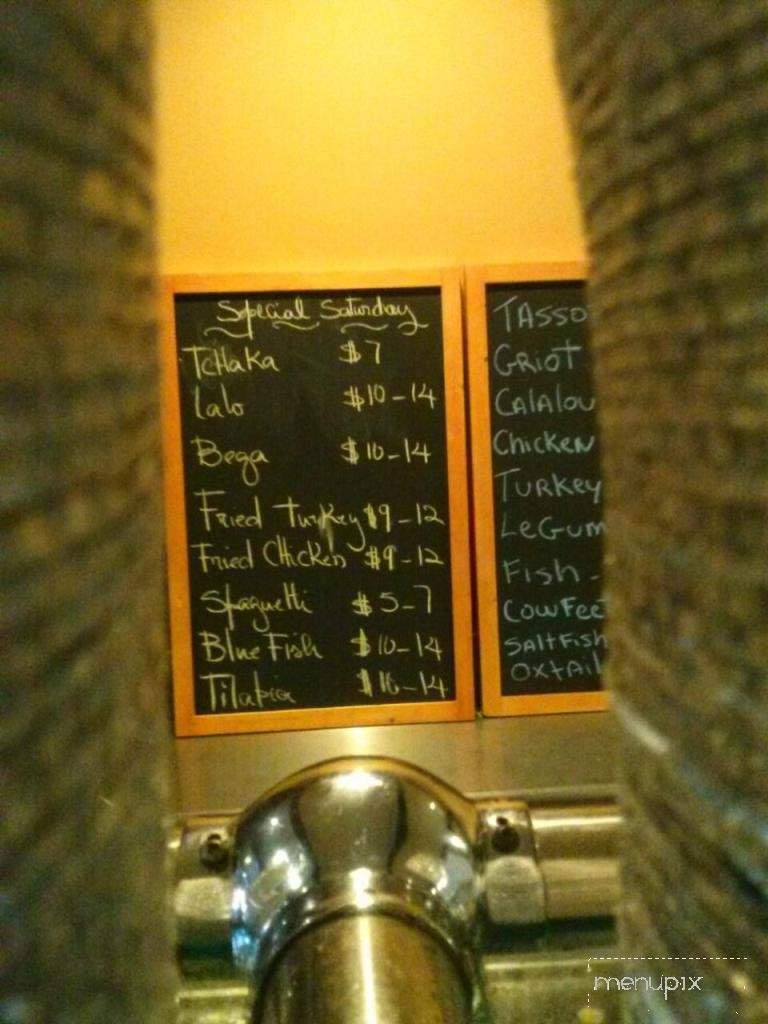 Special Saturday
Tchaka $7
Lalo $10-14
Bega $10-14
Fried Turkey $9-12
Fried Chicken $9-12
Spaguetti $5-7
Blue Fish $10-14
Tilapia $10-14
TASSO
GRIOT
CALALOU
Chicken
TURKEY
LeGUM
Fish -
COWFeeT
SALTFISH
OXTAIL
menupix